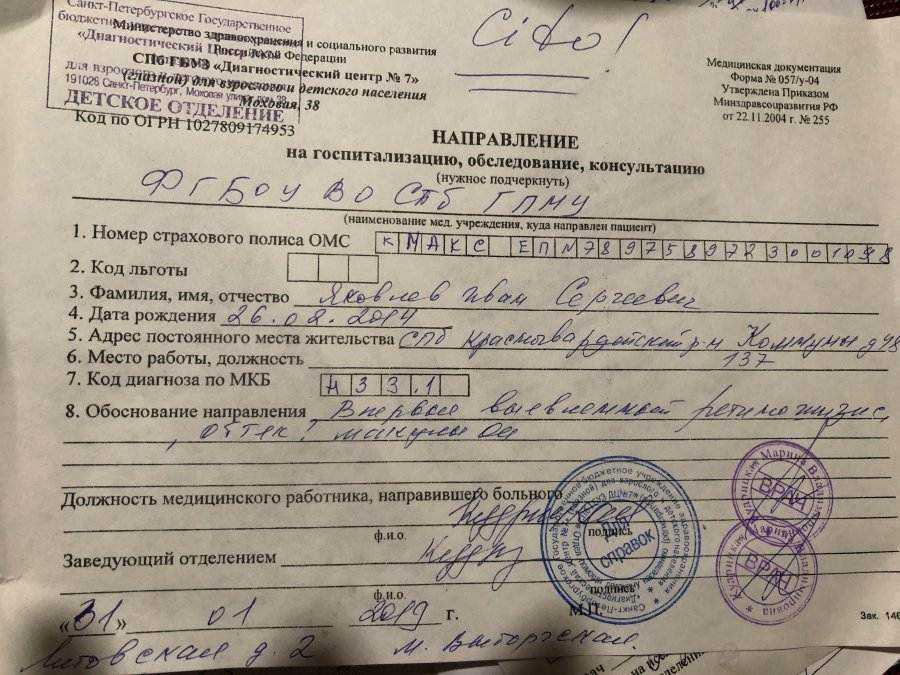 Санкт-Петербургское Государственное
бюджетное
«Диагностический Ц
для взрослого
191028 Санкт-Петербург, Моховая улица
ДЕТСКОЕ ОТДЕЛЕНИЕ
Cito!
Министерство здравоохранения и социального развития
Российской Федерации
СПб ГБУЗ «Диагностический центр № 7»
(глазной) для взрослого и детского населения
Моховая, 38
Код по ОГРН 1027809174953
Медицинская документация
Форма № 057/у-04
Утверждена Приказом
Минздравсоцразвития РФ
от 22.11.2004 г. № 255
НАПРАВЛЕНИЕ
на госпитализацию, обследование, консультацию
(нужное подчеркнуть)
ФГБОУ ВО СПб ГПМУ
(наименование мед. учреждения, куда направлен пациент)
1. Номер страхового полиса ОМС КМАКС ЕПN
2. Код льготы
3. Фамилия, имя, отчество Яковлев Иван Сергеевич
4. Дата рождения 26.02.2014
5. Адрес постоянного места жительства СПб Красногвардейский р-н Коммуны д
137
6. Место работы, должность
7. Код диагноза по МКБ H33.1
8. Обоснование направления Впервые выявленный ретиношизис,
отек макулы
Должность медицинского работника, направившего больного
ф.и.о. подпись
Заведующим отделением
ф.и.о. подпись
«31» 01 2019 г. М.П.
Для справок
ВРАЧ
ВРАЧ
Зак. 146
Литовская д. 2 м. Выборгская